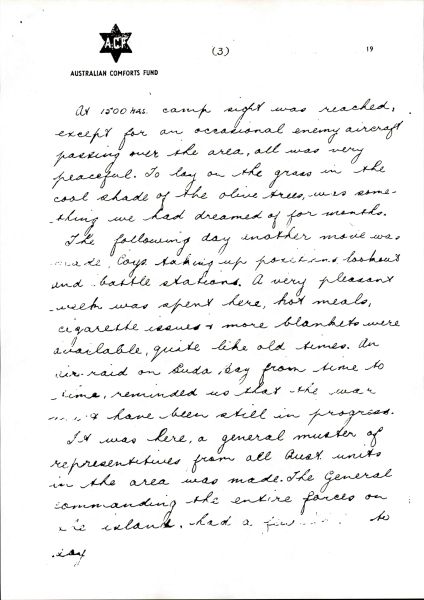 A.C.F.
(3)
19
AUSTRALIAN COMFORTS FUND
At 1500 hrs. camp sight was reached,
except for an occasional enemy aircraft
passing over the area, all was very
peaceful. To lay on the grass in the
cool shade of the olive trees, was some-
thing we had dreamed of for months.
The following day another move was
made, Coys. taking up positions lookout
and battle stations. A very pleasant
week was spent here, hot meals,
cigarette issues & more blankets were
available, quite like old times. An
air-raid on Suda, Bay from time to
time, reminded us that the war
have been still in progress.
It was here, a general muster of
representitives from all Aust units
in the area was made. The General
commanding the entire forces on
the island, had a few to
say